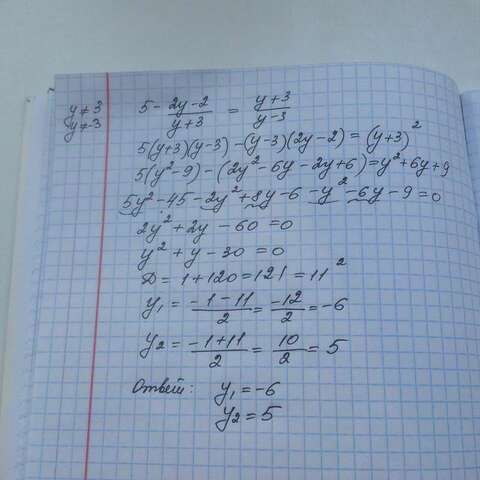 y ≠ 3
y ≠ -3
5 - (2y-2)/(y+3) = (y+3)/(y-3)
5(y+3)(y-3) - (y-3)(2y-2) = (y+3)²
5(y²-9) - (2y²-6y-2y+6) = y²+6y+9
5y²-45-2y²+8y-6-y²-6y-9=0
2y²+2y-60=0
y²+y-30=0
D=1+120=121=11²
y₁ = (-1-11)/2 = -12/2 = -6
y₂ = (-1+11)/2 = 10/2 = 5
Ответ: y₁=-6
y₂=5